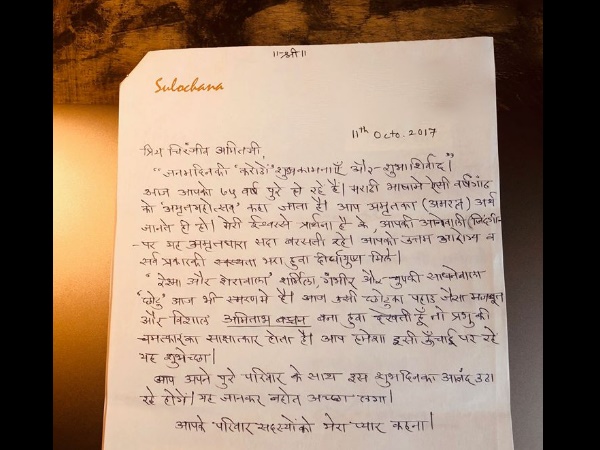 ॥श्री॥
Sulochana
11th Octo. 2017
प्रिय चिरंजीव अमितजी,
"जनमदिनकी 'करोडों' शुभकामनाएँ और शुभाशिर्वाद"
आज आपको ७५ वर्ष पुरे हो रहे है। मराठी भाषामे ऐसी वर्षगांठ
को 'अमृतमहोत्सव' कहा जाता है। आप अमृतका (अमरत्व) अर्थ
जानते ही हो। मेरी ईश्वरसे प्रार्थना है के, आपकी आनेवाली जिंदगी-
पर यह अमृतधारा सदा बरसती रहे। आपको उत्तम आरोग्य व
सर्व प्रकारकी स्वस्थता भरा हुवा दीर्घायुष्य मिले।
"रेश्मा और शेरावाला" शर्मिला, गंभीर और चुपकी साधनेवाला
"छोटु" आज भी स्मरणमे है। आज उसी छोटुका पहाड जैसा मजबूत
और विशाल अमिताभ बच्चन बना हुवा देखती हूँ तो प्रभु की
चमत्कारका साक्षात्कार होता है। आप हमेशा इसी ऊँचाई पर रहे
यह शुभेच्छा।
आप अपने पुरे परिवार के साथ इस शुभदिनका आनंद उठा
रहे होंगे। यह जानकर बहोत अच्छा लगा।
आपके परिवार सदस्योंको मेरा प्यार कहना।